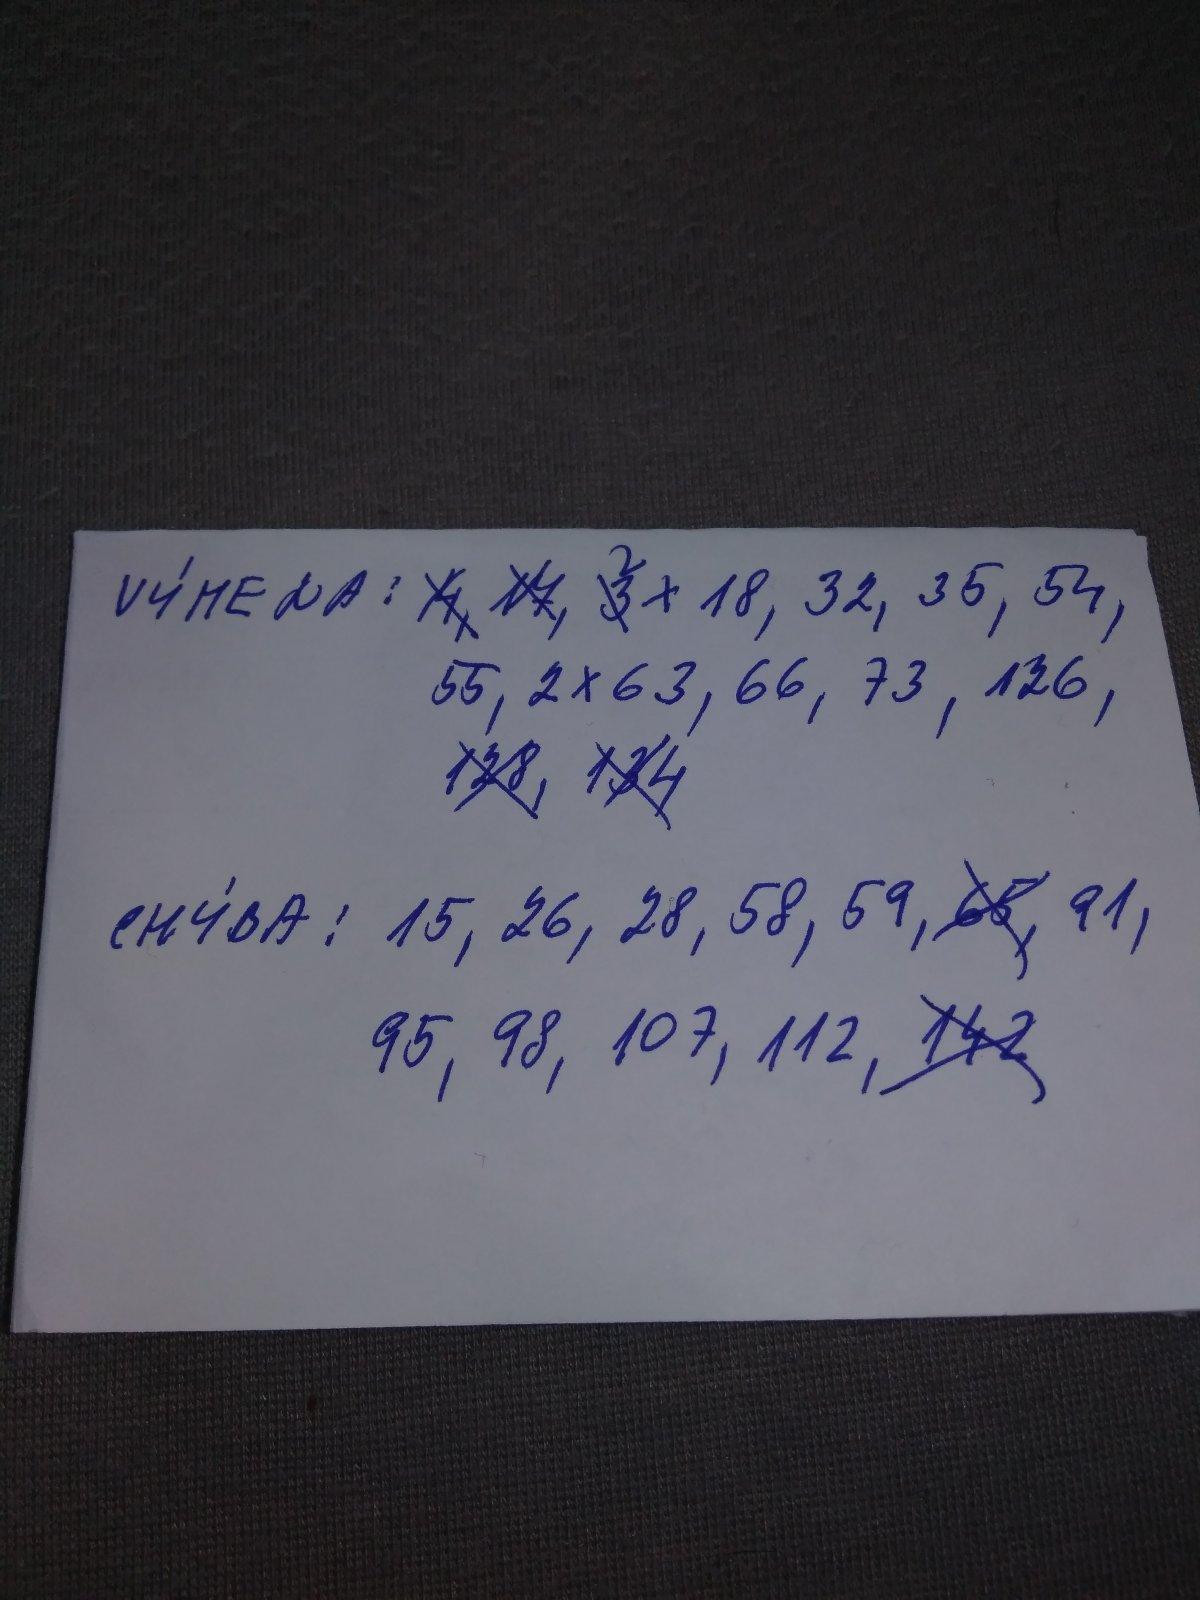 VÝMENA: 4, 17, 2x 18, 32, 35, 54,
55, 2x63, 66, 73, 126,
128, 134
CHÝBA: 15, 26, 28, 58, 59, 65, 91,
95, 98, 107, 112, 142